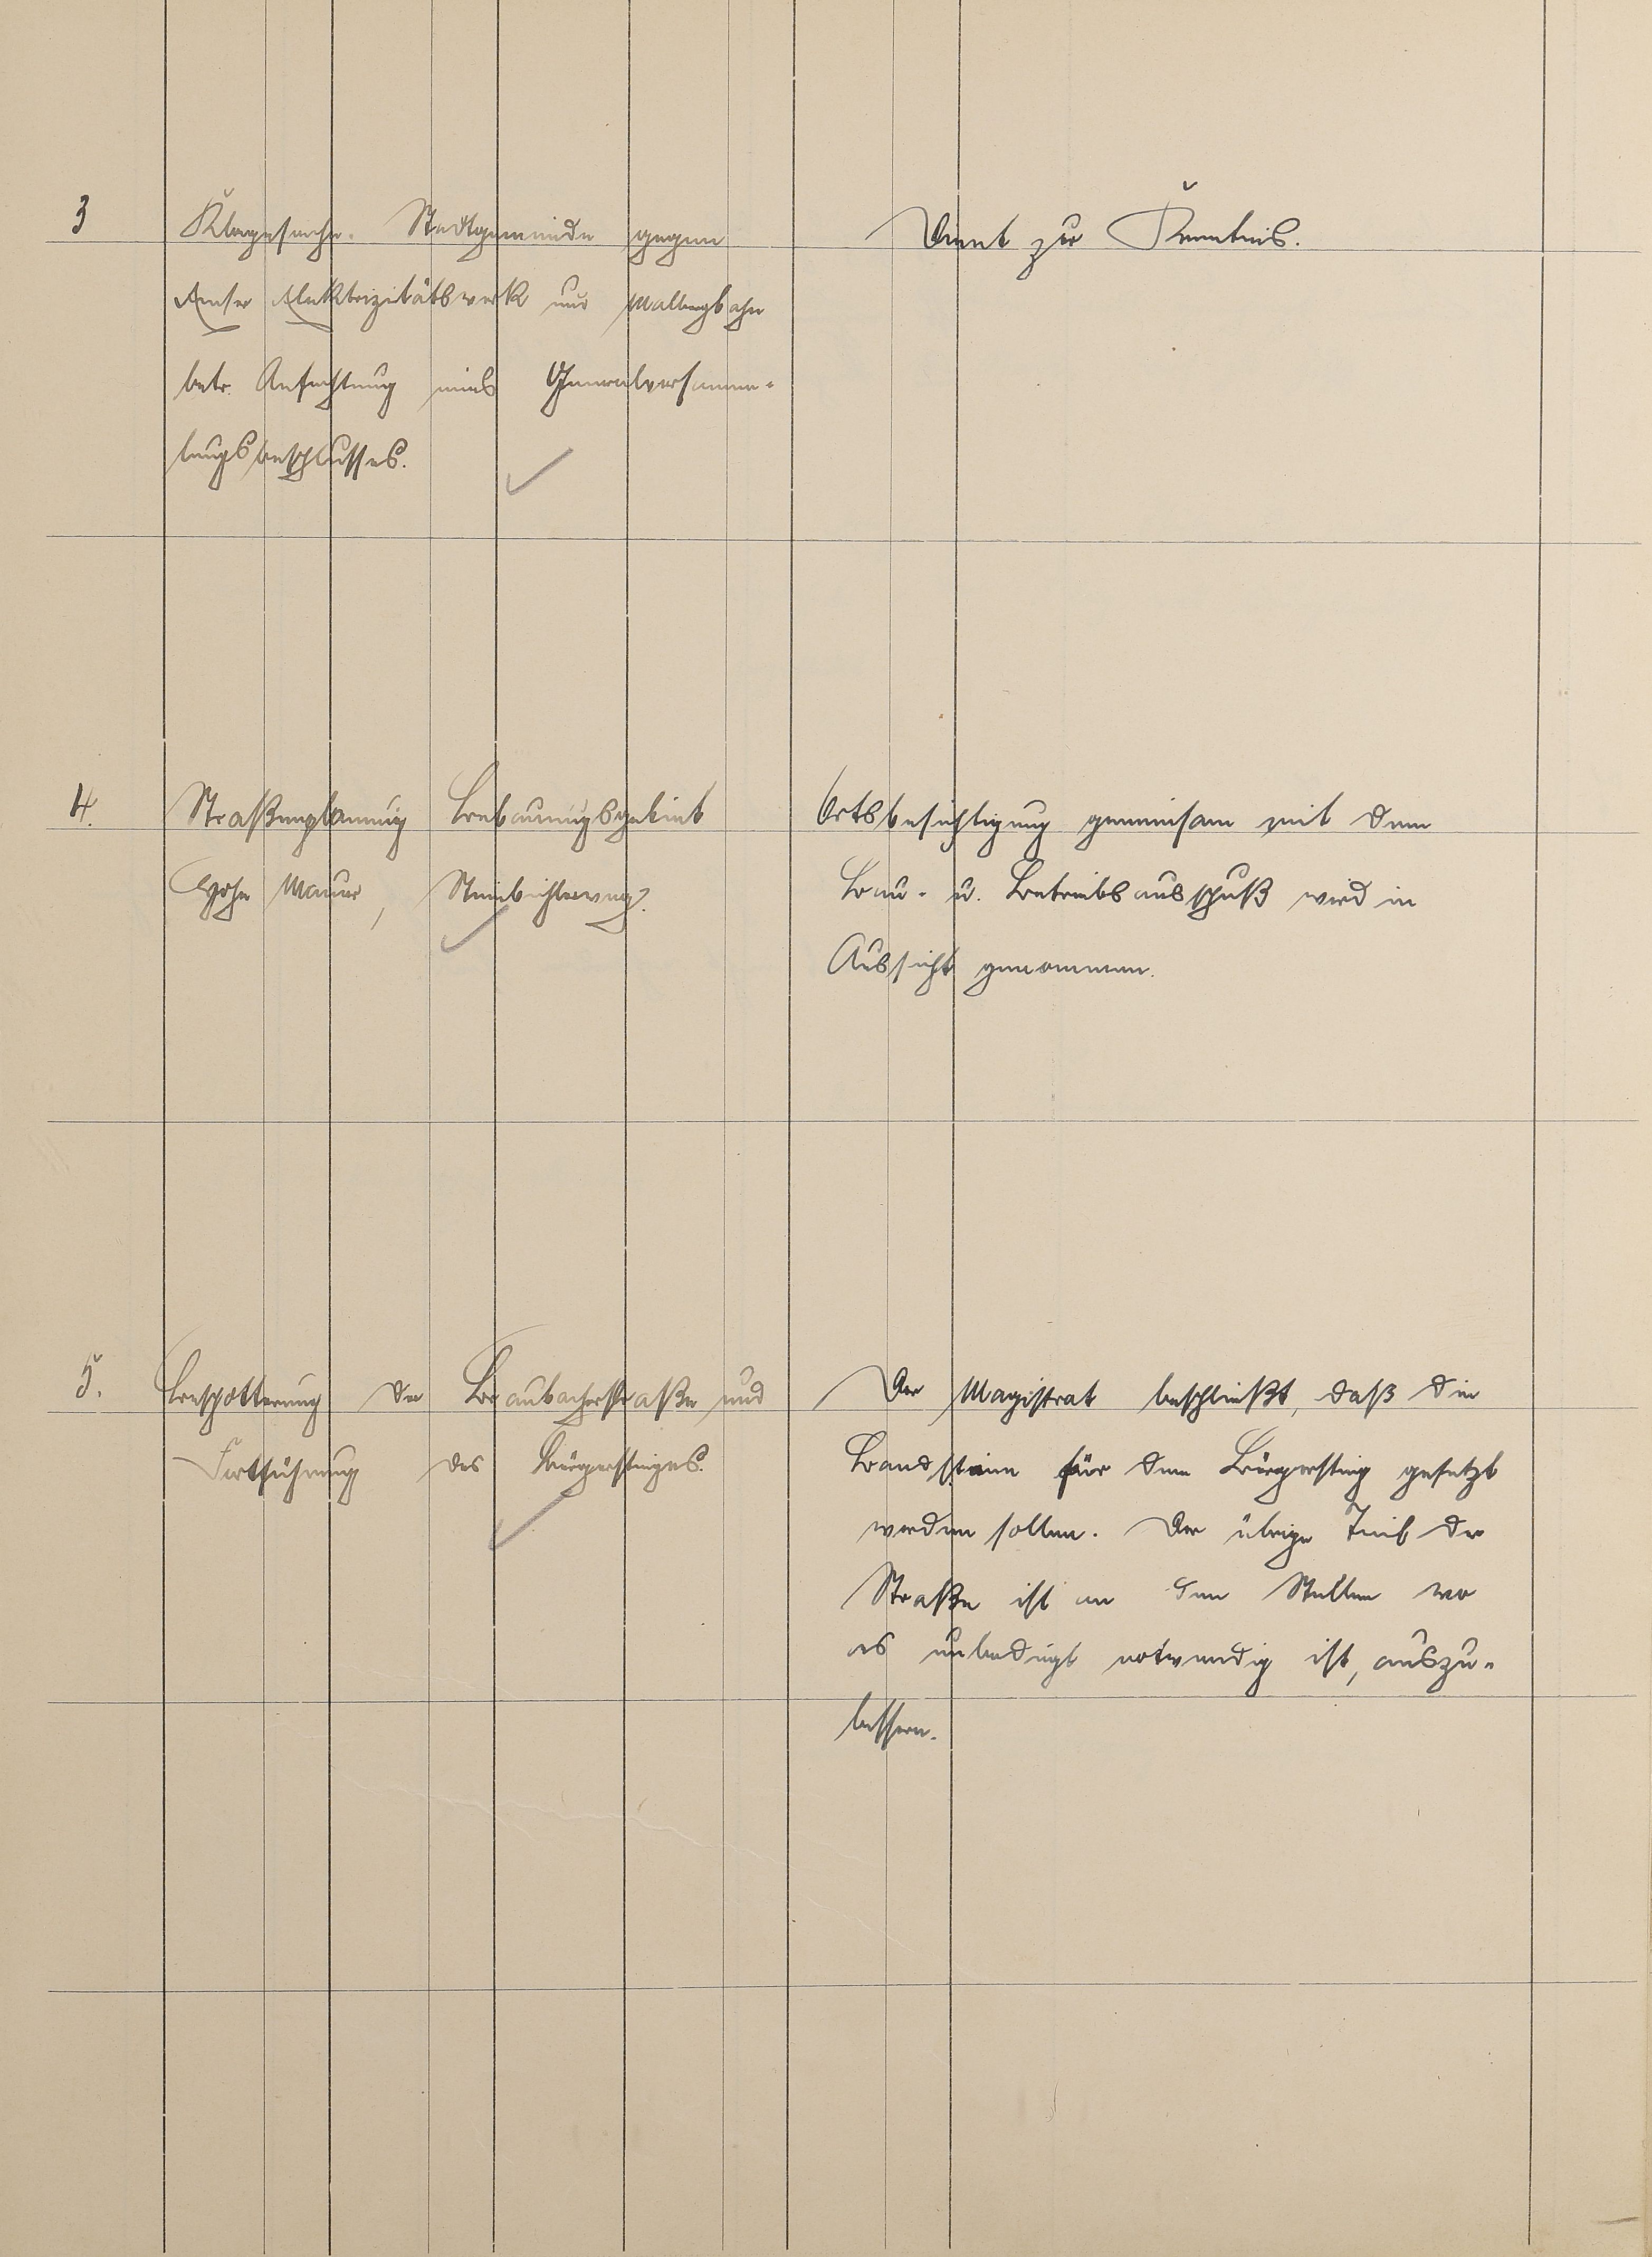 3
Klagesache. Stadtgemeinde gegen
Emser Elektrizitätswerk und Malbergbahn
betr. Anfechtung eines Generalversamm-
lungsbeschlusses.
Dient zur Kenntnis.
4.
Straßenplanung Bebauungsgebiet
Hohe Mauer,
Ortsbesichtigung gemeinsam mit dem
Bau- u. Betriebsausschuß wird in
Aussicht genommen.
5.
Beschotterung der Braubacherstraße und
Fortführung des Bürgersteiges.
Der Magistrat beschließt, daß die
Randsteine für den Bürgersteig gesetzt
werden sollen. Der übrige Teil der
Straße ist an den Stellen wo
es unbedingt notwendig ist, auszu-
bessern.